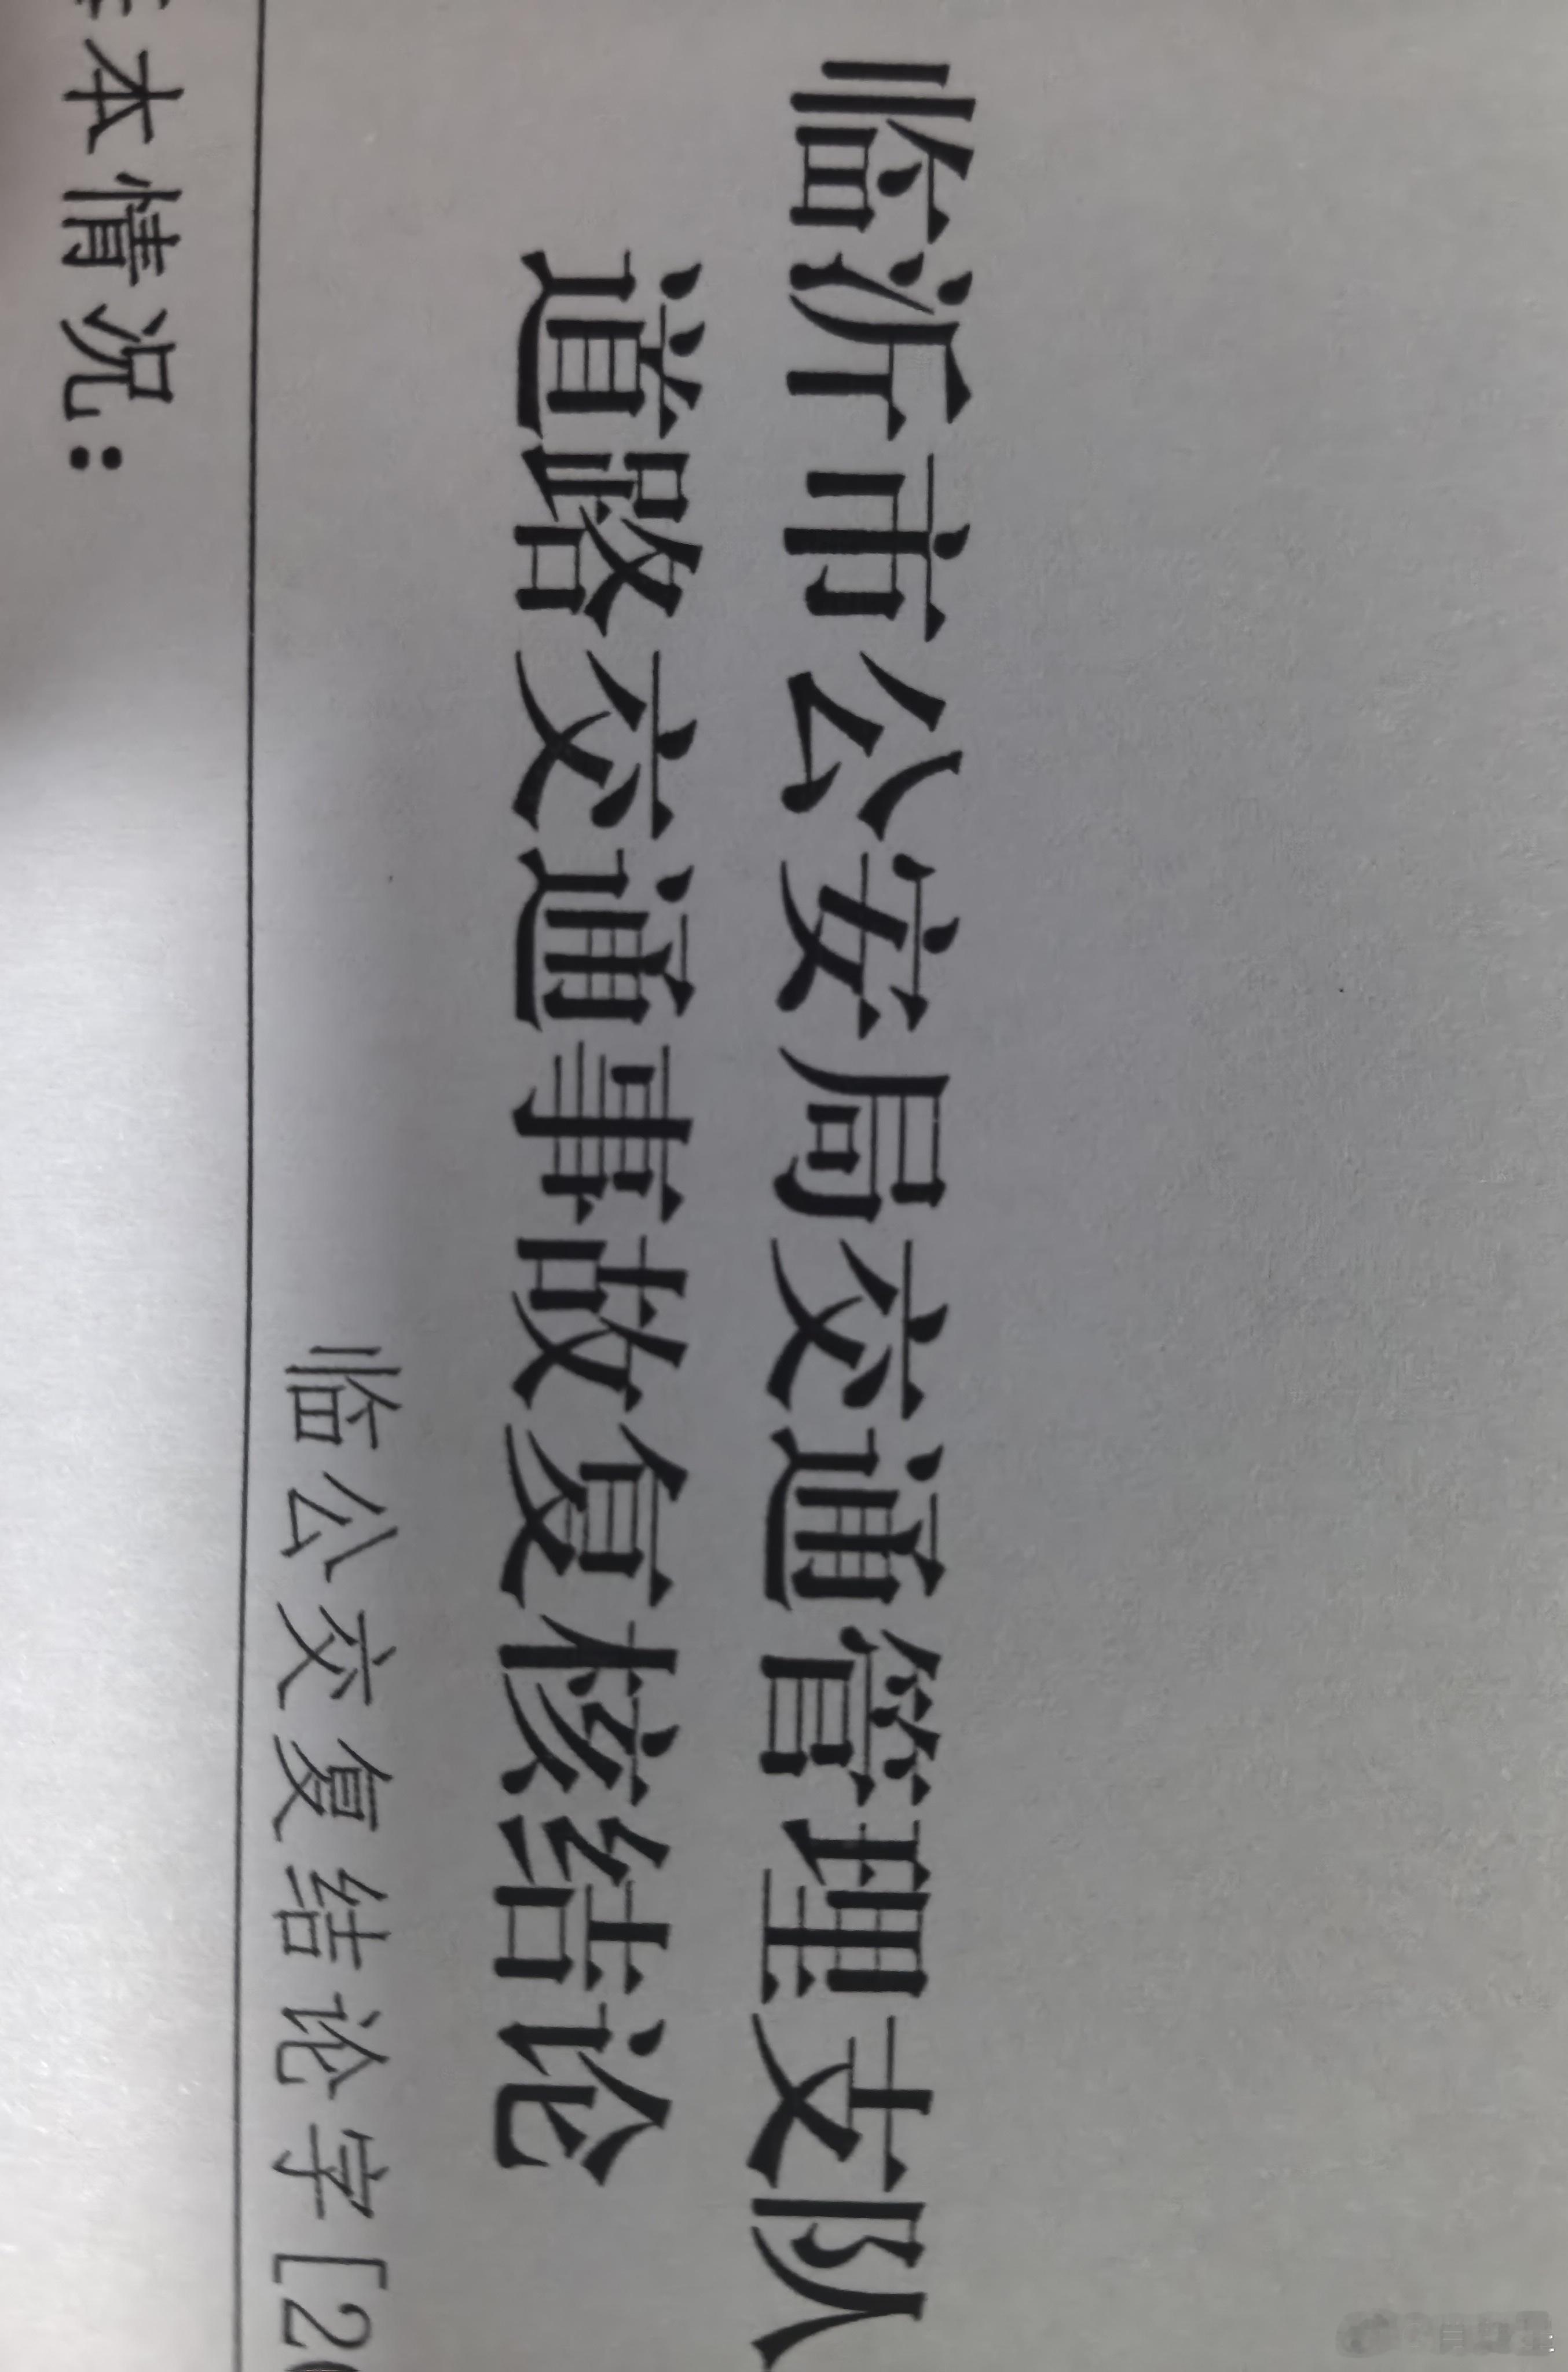 临沂市公安局交通管理支队
道路交通事故复核结论
临公交复结论字[20
本情况：